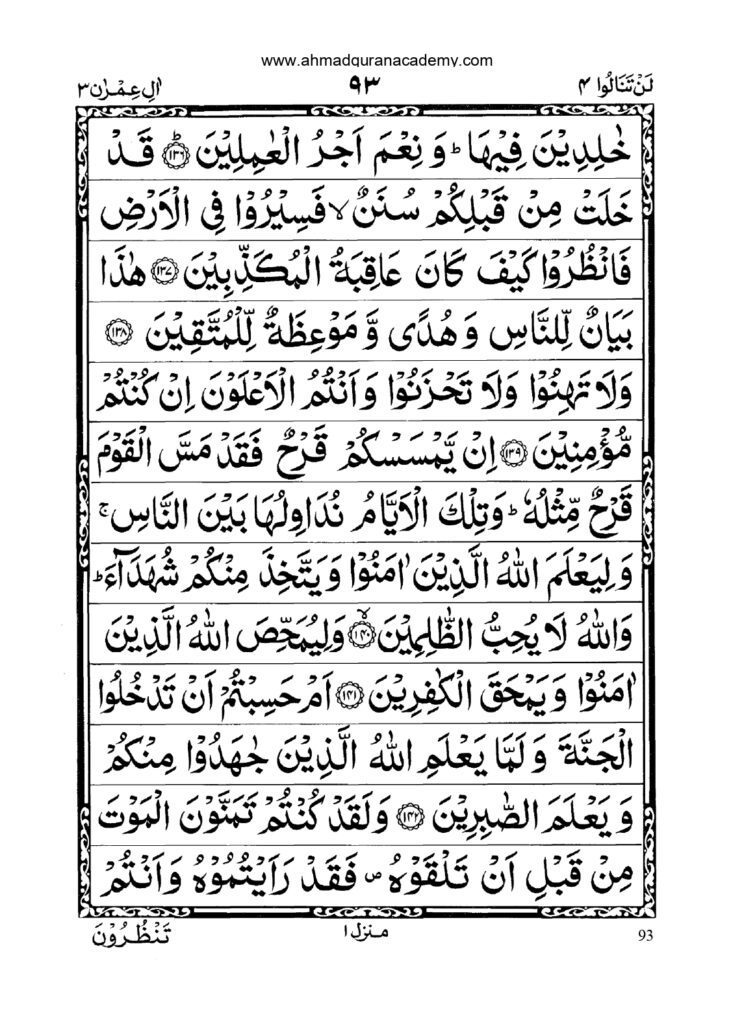 www.ahmadquranacademy.com
لَنْ تَنَالُوا ۴ ۹۳ اٰلِ عِمْرٰن ۳
خٰلِدِيْنَ فِيْهَا ؕ وَ نِعْمَ اَجْرُ الْعٰمِلِيْنَ ؕ ﴿۱۳۶﴾ قَدْ
خَلَتْ مِنْ قَبْلِكُمْ سُنَنٌ ۙ فَسِيْرُوْا فِی الْاَرْضِ
فَانْظُرُوْا كَيْفَ كَانَ عَاقِبَةُ الْمُكَذِّبِيْنَ ﴿۱۳۷﴾ هٰذَا
بَيَانٌ لِّلنَّاسِ وَ هُدًی وَّ مَوْعِظَةٌ لِّلْمُتَّقِيْنَ ﴿۱۳۸﴾
وَلَا تَهِنُوْا وَلَا تَحْزَنُوْا وَ اَنْتُمُ الْاَعْلَوْنَ اِنْ كُنْتُمْ
مُّؤْمِنِيْنَ ﴿۱۳۹﴾ اِنْ يَّمْسَسْكُمْ قَرْحٌ فَقَدْ مَسَّ الْقَوْمَ
قَرْحٌ مِّثْلُهٗ ؕ وَتِلْكَ الْاَيَّامُ نُدَاوِلُهَا بَيْنَ النَّاسِ ۚ
وَ لِيَعْلَمَ اللّٰهُ الَّذِيْنَ اٰمَنُوْا وَ يَتَّخِذَ مِنْكُمْ شُهَدَآءَ ؕ
وَاللّٰهُ لَا يُحِبُّ الظّٰلِمِيْنَ ۙ ﴿۱۴۰﴾ وَلِيُمَحِّصَ اللّٰهُ الَّذِيْنَ
اٰمَنُوْا وَ يَمْحَقَ الْكٰفِرِيْنَ ﴿۱۴۱﴾ اَمْ حَسِبْتُمْ اَنْ تَدْخُلُوا
الْجَنَّةَ وَ لَمَّا يَعْلَمِ اللّٰهُ الَّذِيْنَ جٰهَدُوْا مِنْكُمْ
وَ يَعْلَمَ الصّٰبِرِيْنَ ﴿۱۴۲﴾ وَلَقَدْ كُنْتُمْ تَمَنَّوْنَ الْمَوْتَ
مِنْ قَبْلِ اَنْ تَلْقَوْهُ ۪ فَقَدْ رَاَيْتُمُوْهُ وَاَنْتُمْ
93 منزل ۱ تَنْظُرُوْنَ